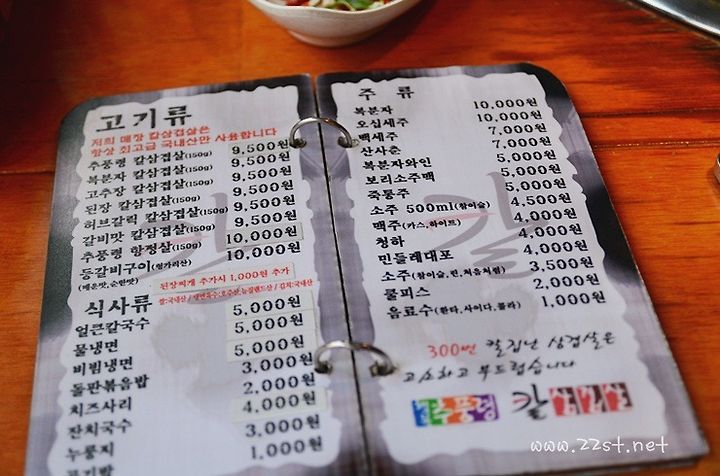 고기류
저희 매장 칼삼겹살은
항상 최고급 국내산만 사용합니다
추풍령 칼삼겹살(150g) 9,500원
복분자 칼삼겹살(150g) 9,500원
고추장 칼삼겹살(150g) 9,500원
된장 칼삼겹살(150g) 9,500원
허브갈릭 칼삼겹살(150g) 9,500원
갈비맛 칼삼겹살(150g) 9,500원
추풍령 항정살(150g) 10,000원
등갈비구이(헝가리산) 10,000원
(매운맛,순한맛)
된장찌개 추가시 1,000원 추가
식사류 쌀:국내산 / 냉면육수:호주산,뉴질랜드산 / 김치:국내산
얼큰칼국수 5,000원
물냉면 5,000원
비빔냉면 5,000원
돌판볶음밥 3,000원
치즈사리 2,000원
잔치국수 4,000원
누룽지 3,000원
공기밥 1,000원
주 류
복분자 10,000원
오십세주 10,000원
백세주 7,000원
산사춘 7,000원
복분자와인 5,000원
보리소주맥 5,000원
죽통주 5,000원
소주 500ml(참이슬) 4,500원
맥주(카스,하이트) 4,000원
청하 4,000원
민들레대포 4,000원
소주(참이슬,린,처음처럼) 3,500원
쿨피스 2,000원
음료수(환타,사이다,콜라) 1,000원
300번 칼집난 삼겹살은
고소하고 부드럽습니다
추풍령 칼 삼겹살
www.22st.net